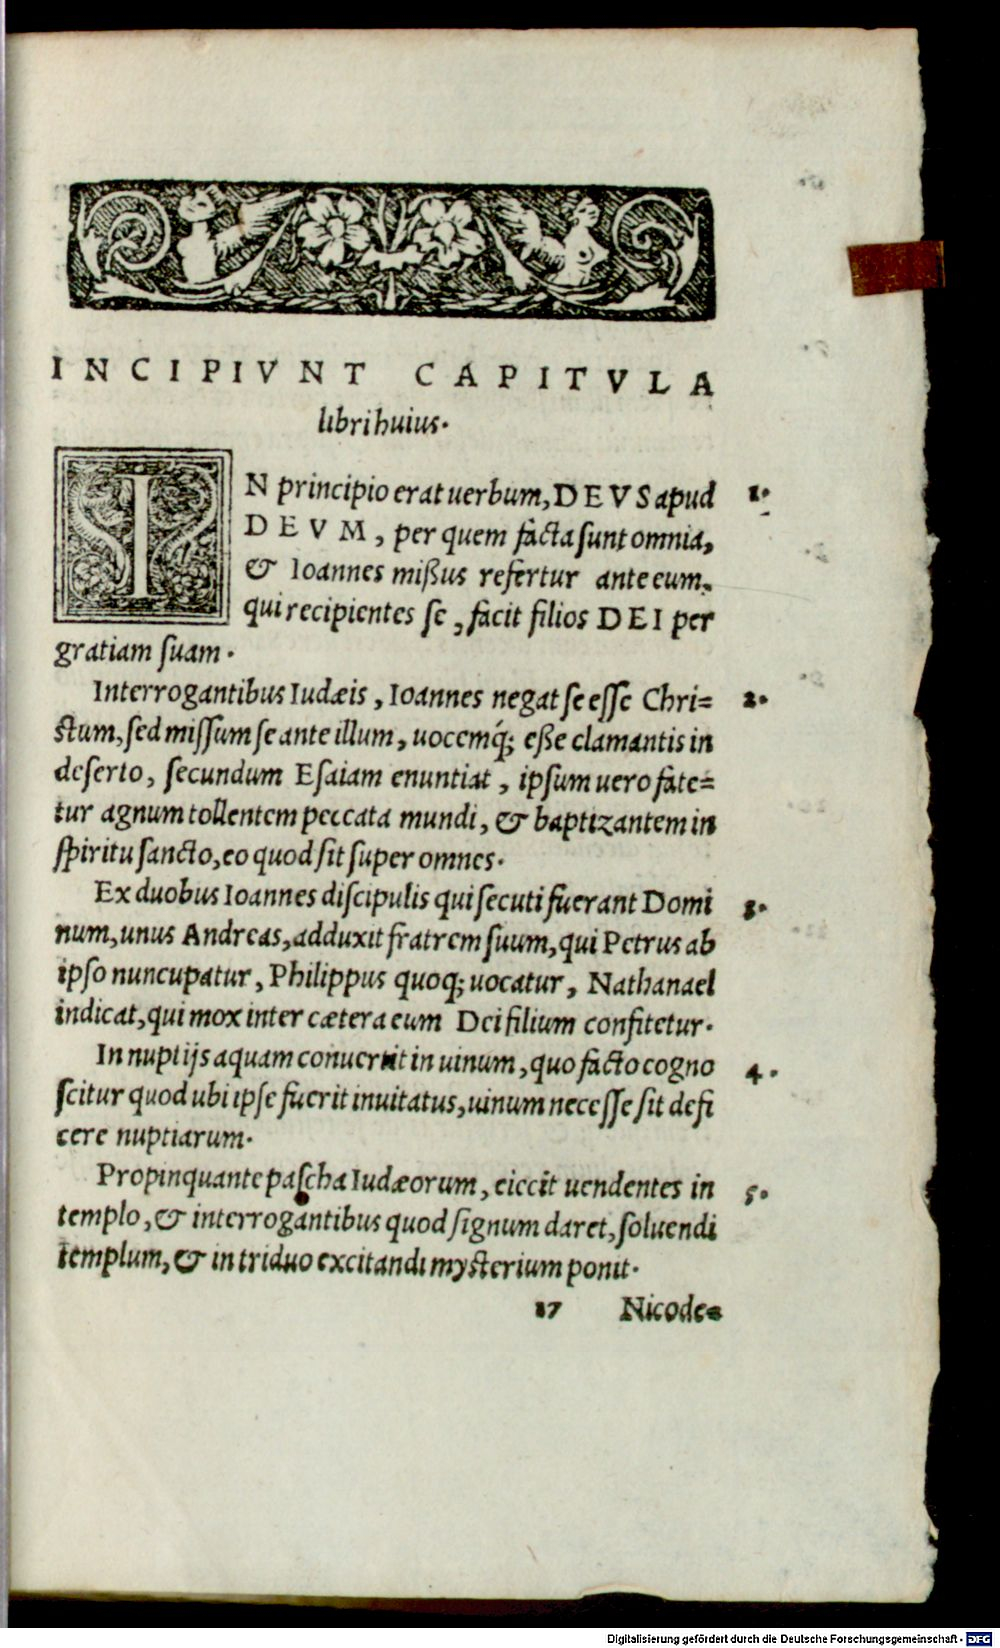 INCIPIVNT CAPITVLA
libri huius.
IN principio erat uerbum, DEVS apud 1.
DEVM, per quem facta sunt omnia,
& Ioannes mißus refertur ante eum.
qui recipientes se, facit filios DEI per
gratiam suam.
Interrogantibus Iudæis, Ioannes negat se esse Chri= 2.
stum, sed missum se ante illum, uocemq́; eße clamantis in
deserto, secundum Esaiam enuntiat, ipsum uero fate=
tur agnum tollentem peccata mundi, & baptizantem in
spiritu sancto, eo quod sit super omnes.
Ex duobus Ioannes discipulis qui secuti fuerant Domi 3.
num, unus Andreas, adduxit fratrem suum, qui Petrus ab
ipso nuncupatur, Philippus quoq; uocatur, Nathanael
indicat, qui mox inter cætera eum Dei filium confitetur.
In nuptijs aquam conuertit in uinum, quo facto cogno 4.
scitur quod ubi ipse fuerit inuitatus, uinum necesse sit defi
cere nuptiarum.
Propinquante pascha Iudæorum, eiecit uendentes in 5.
templo, & interrogantibus quod signum daret, soluendi
templum, & in triduo excitandi mysterium ponit.
17 Nicode=
Digitalisierung gefördert durch die Deutsche Forschungsgemeinschaft - DFG